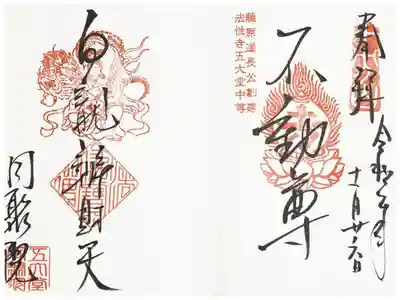 奉拝
令和
月廿六日
藤原道長公創建
法性寺五大堂中尊
不動尊
白龍辨財天
同聚院
五大堂